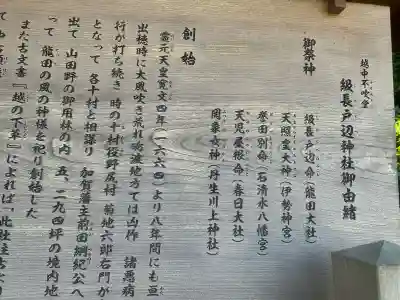 越中不吹堂
級長戸辺神社御由緒
御祭神
級長戸辺命(龍田大社)
天照皇大神(伊勢神宮)
誉田別命(石清水八幡宮)
天児屋根命(春日大社)
罔象女神(丹生川上神社)
創始
霊元天皇寛文四年(一六六四)より八年間にも亘
出穂時に大風吹き荒れ砺波地方では凶作 諸悪病
行が打ち続き 時の十村役野尻村 菊地六郎右門が
となって 各十村と相謀り 加賀藩主前田綱紀公へ
出て 山田野の御用林の内 五、二九四坪の境内地
って 龍田の風の神様を祀り創始した
また古文書『越の下草』によれば、此社往古